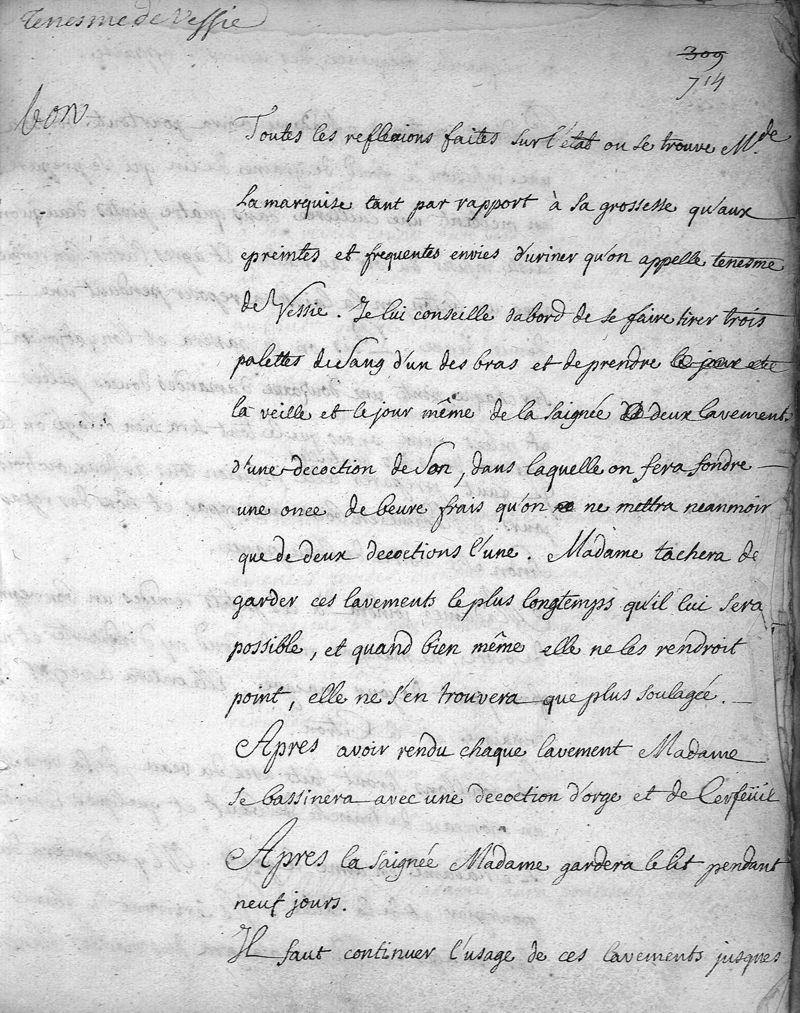 Tenesme de Vessie
309
714
bon
Toutes les reflexions faites sur l'état ou se trouve M.de
La marquise tant par rapport à sa grossesse qu'aux
epreintes et frequentes envies d'uriner qu'on appelle tenesme
de Vessie. Je lui conseille dabord de se faire tirer trois
palettes de Sang d'un des bras et de prendre le jour et le
la veille et le jour même de la saignée deux lavements
d'une decoction de Son, dans laquelle on fera fondre
une once de beure frais qu'on ne mettra neanmoir
que de deux decoctions l'une. Madame tachera de
garder ces lavements le plus longtemps qu'il lui sera
possible, et quand bien même elle ne les rendroit
point, elle ne s'en trouvera que plus soulagée.
Apres avoir rendu chaque lavement Madame
se bassinera avec une decoction d'orge et de Cerfeüil
Apres la saignée Madame gardera le lit pendant
neuf jours.
Il faut continuer l'usage de ces lavements jusques